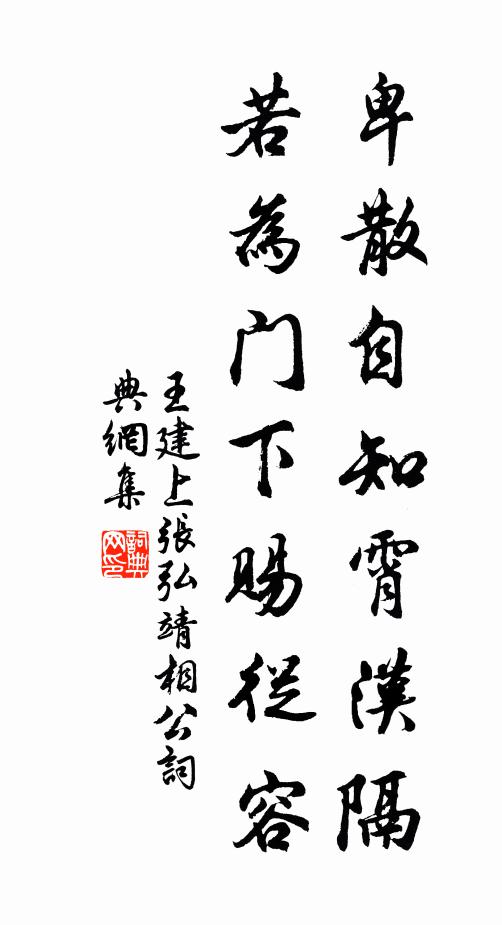 卑散自知霄漢隔
若為門下賜從容
王建上張弘靖相公詞
典網集
詞典
网印